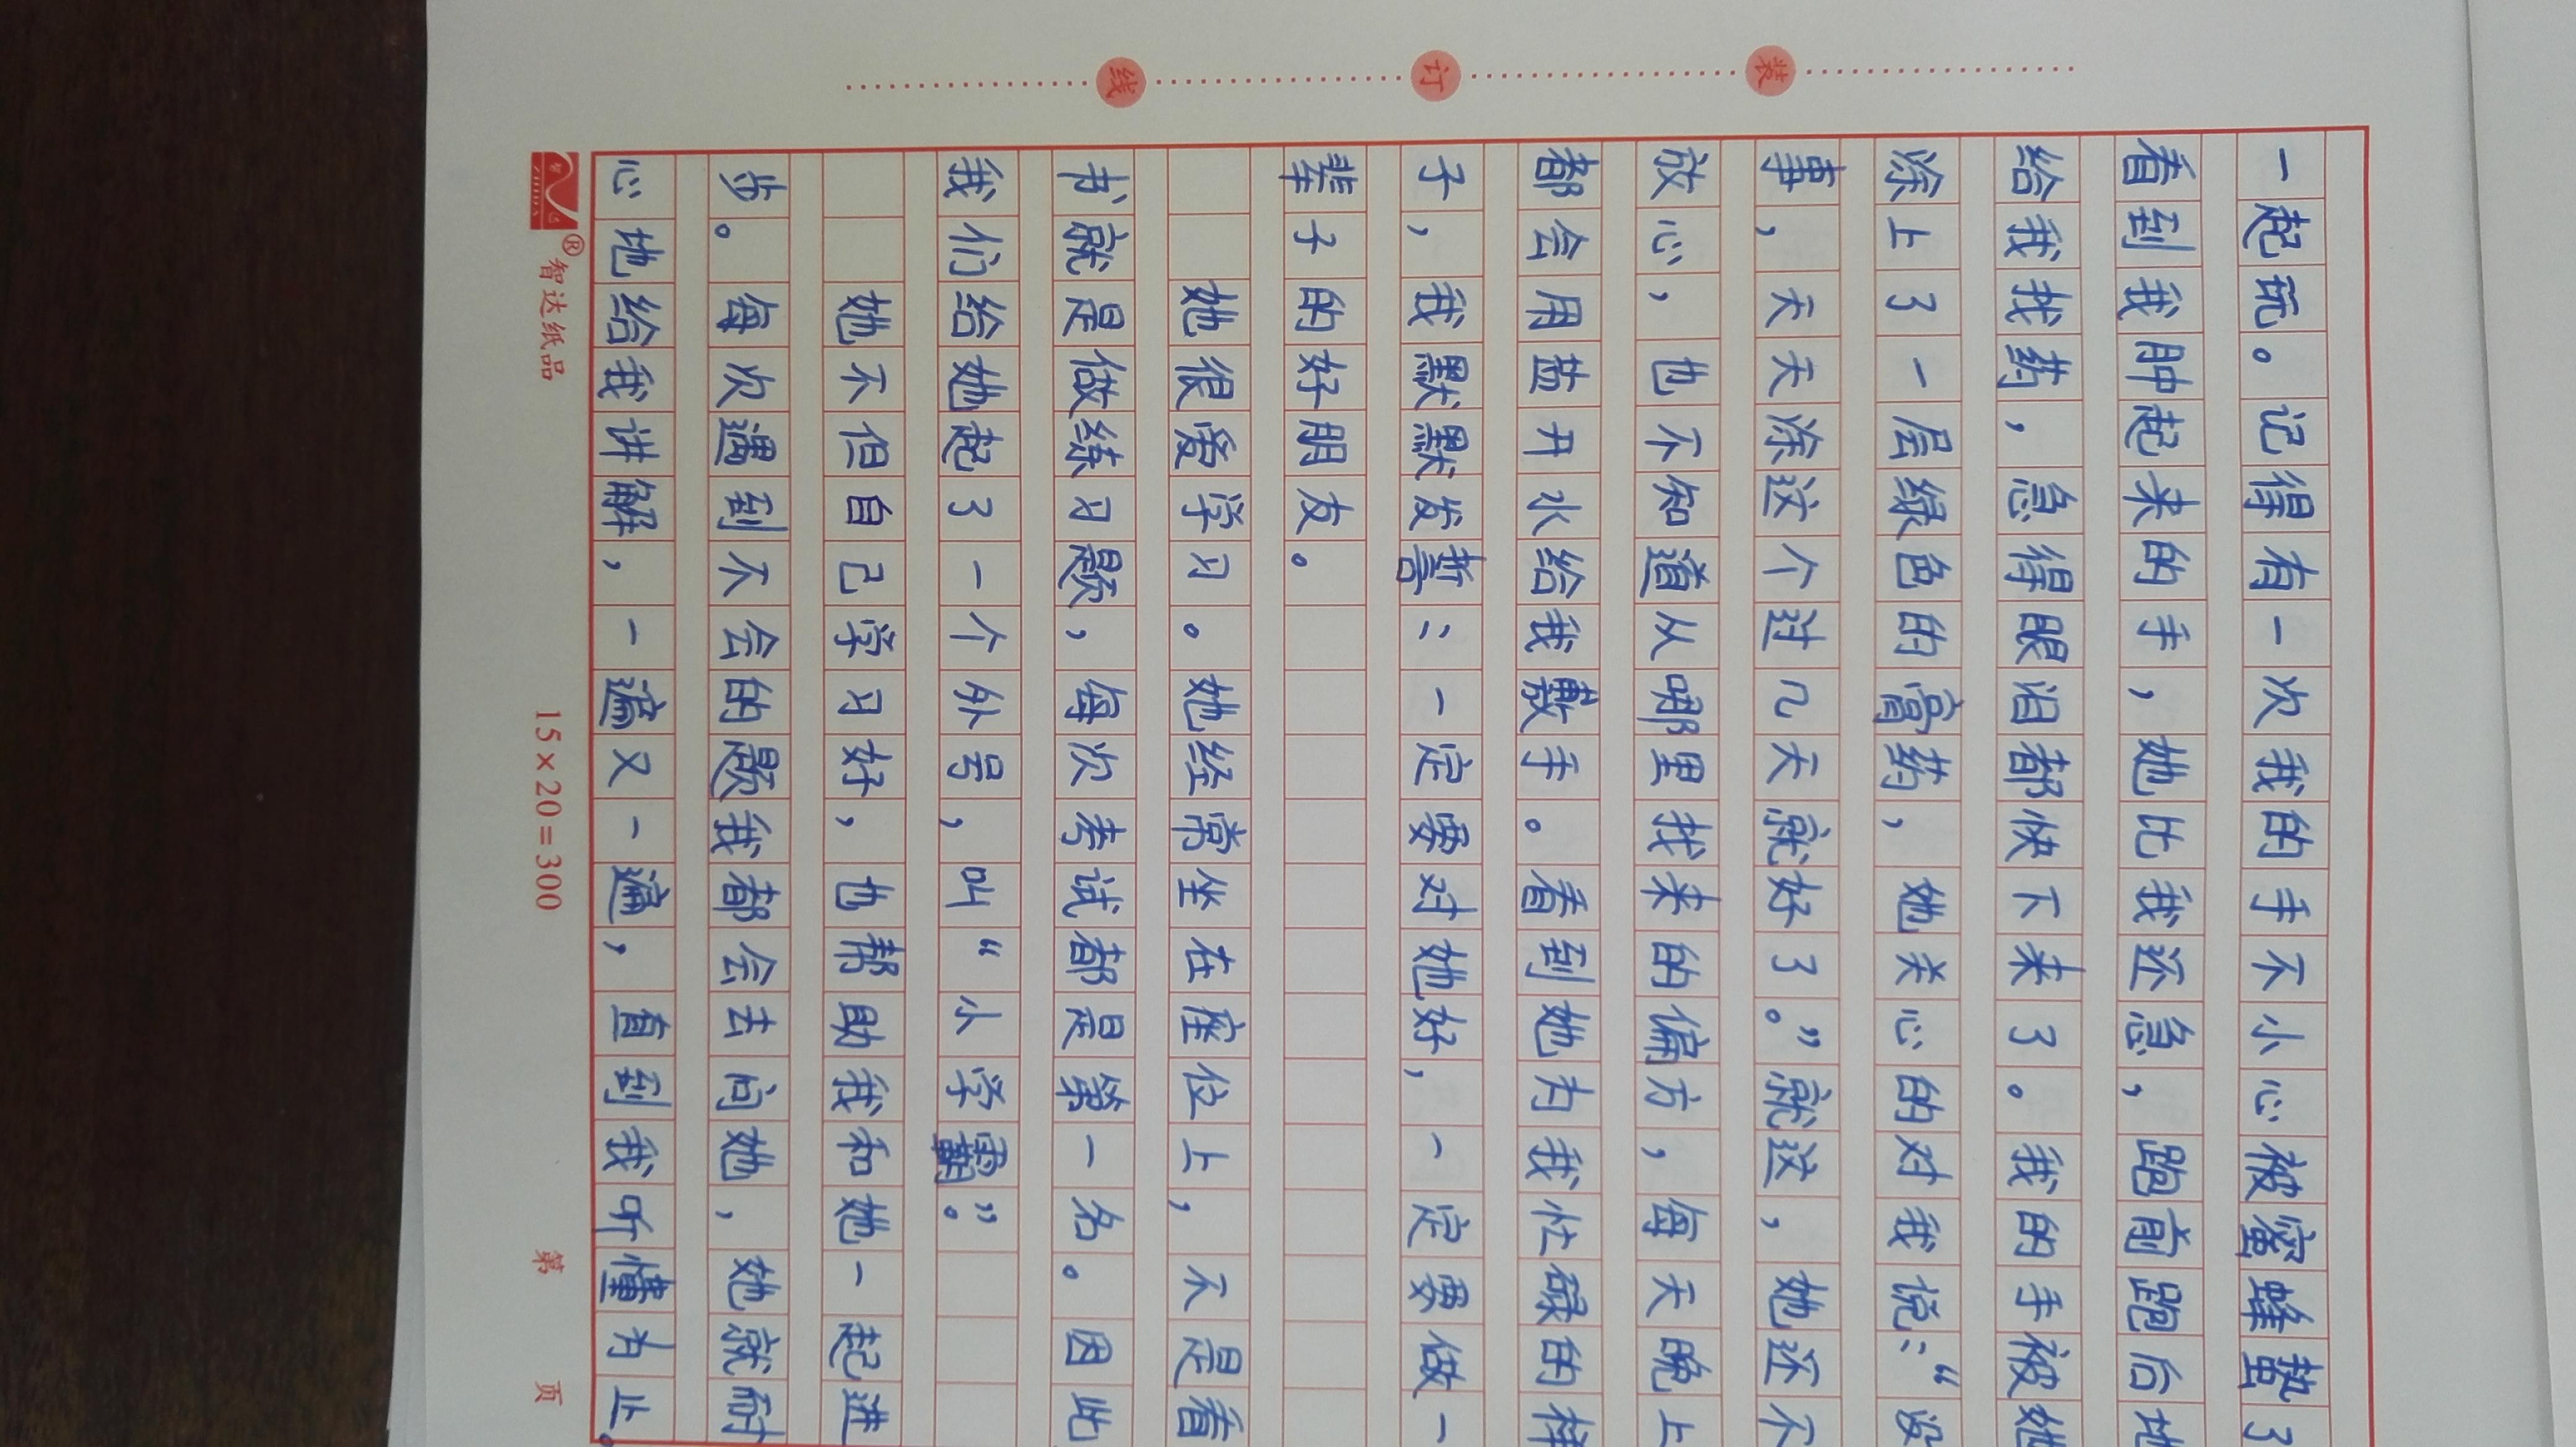 装 订 线
一起玩。记得有一次我的手不小心被蜜蜂蛰了
看到我肿起来的手，她比我还急，跑前跑后地
给我找药，急得眼泪都快下来了。我的手被她
涂上了一层绿色的膏药，她关心的对我说：“没
事，天天涂这个过几天就好了。”就这，她还不
放心，也不知道从哪里找来的偏方，每天晚上
都会用盐开水给我敷手。看到她为我忙碌的样
子，我默默发誓：一定要对她好，一定要做一
辈子的好朋友。
她很爱学习。她经常坐在座位上，不是看
书就是做练习题，每次考试都是第一名。因此
我们给她起了一个外号，叫“小学霸”。
她不但自己学习好，也帮助我和她一起进
步。每次遇到不会的题我都会去问她，她就耐
心地给我讲解，一遍又一遍，直到我听懂为止。
®智达纸品 15×20=300 第 页